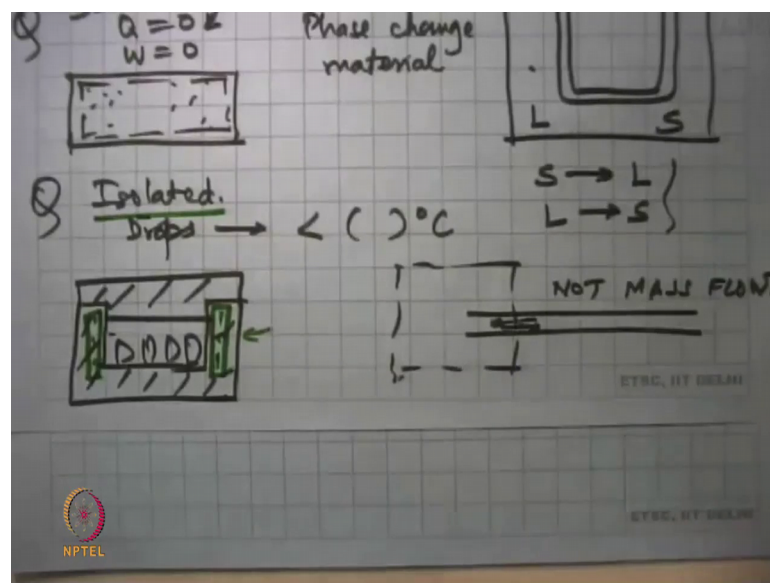 Q
Q = 0
W = 0
Phase change
material
L S
Q Isolated.
Drops → < ( )°C
S → L
L → S
NOT MASS FLOW
D D D D
ETSC, IIT DELHI
ETSC, IIT DELHI
NPTEL